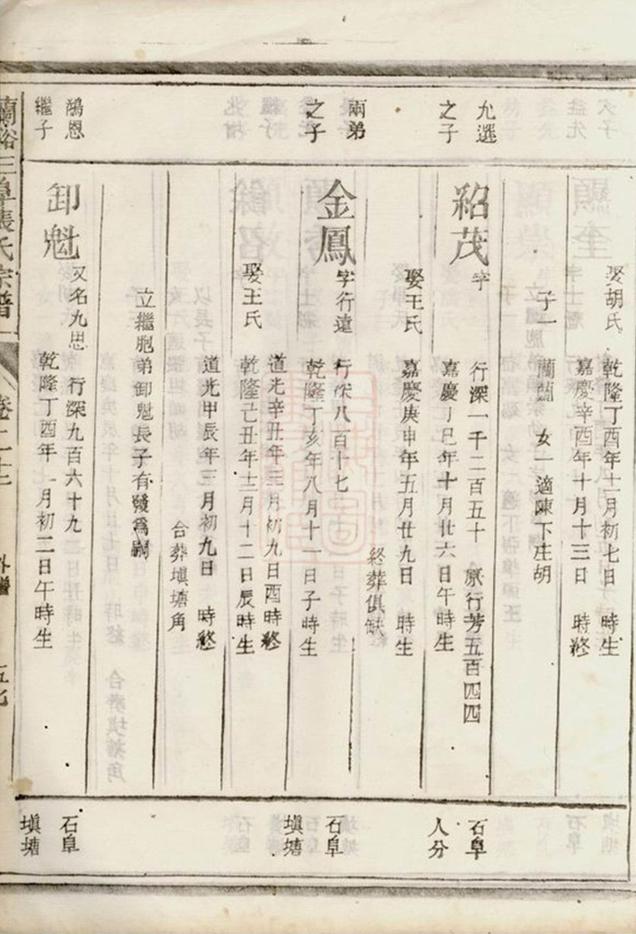 娶胡氏 乾隆丁酉年十二月初七日 時生
嘉慶辛酉年十月十三日 時終
子一 蘭蘭 女一適陳下庄胡
允選之子
紹茂 字 行深一千二百五十 原行芳五百四四
嘉慶丁巳年十月廿六日午時生
娶王氏 嘉慶庚申年五月廿九日 時生
終葬俱缺
石阜人分
兩弟之子
金鳳 字行遠 行深八百十七
乾隆丁亥年八月十一日子時生
道光辛丑年三月初九日酉時終
娶王氏 乾隆己丑年十二月十二日辰時生
道光甲辰年三月初九日 時終
合葬塡塘角
立繼胞弟卸魁長子有發爲嗣
石阜塡塘
鴻恩繼子
卸魁 又名九思 行深九百六十九
乾隆丁酉年 月初二日午時生
石阜塡塘
蘭谿三阜張氏宗譜 卷二十三 外譜